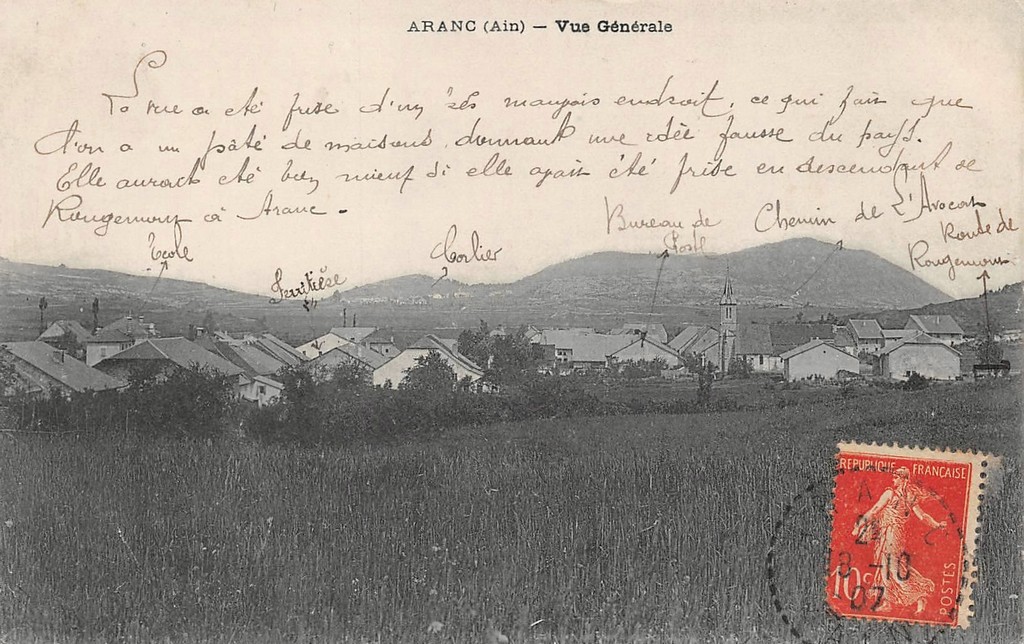 ARANC (Ain) — Vue Générale
La vue a été prise d'un très mauvais endroit, ce qui fait que
l'on a un pâté de maisons, donnant une idée fausse du pays.
Elle aurait été bien mieux si elle avait été prise en descendant de
Rougemont à Aranc -
École
Corlier
Bureau de
Poste
Chemin de L'Avocat
Route de
Rougemont
REPUBLIQUE FRANÇAISE
10c
POSTES
3 -10
07